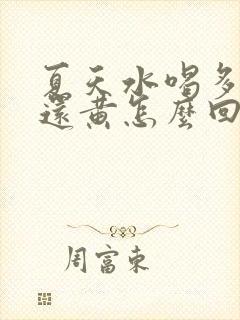 夏天水喝多
還黃怎麼回
周富東